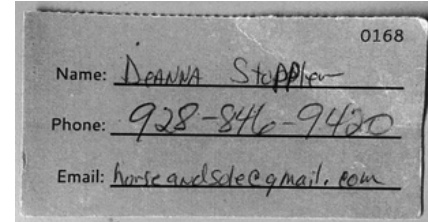 0168
Name: DEANNA Stoppler
Phone: 928-846-9420
Email: horseandsole@gmail.com